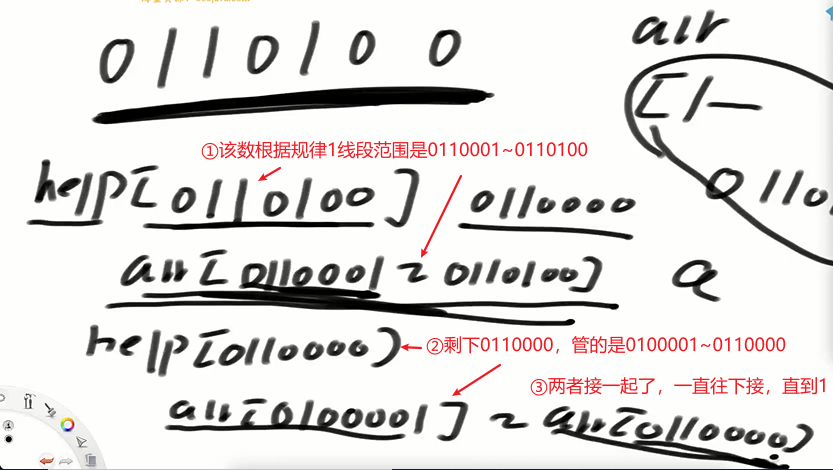 0110100
arr
[1—
①该数根据规律1线段范围是0110001~0110100
help[0110100] 0110000
01101
arr[0110001~0110100] a
help[0110000)
②剩下0110000，管的是0100001~0110000
③两者接一起了，一直往下接，直到1
arr[0100001]~arr[0110000)